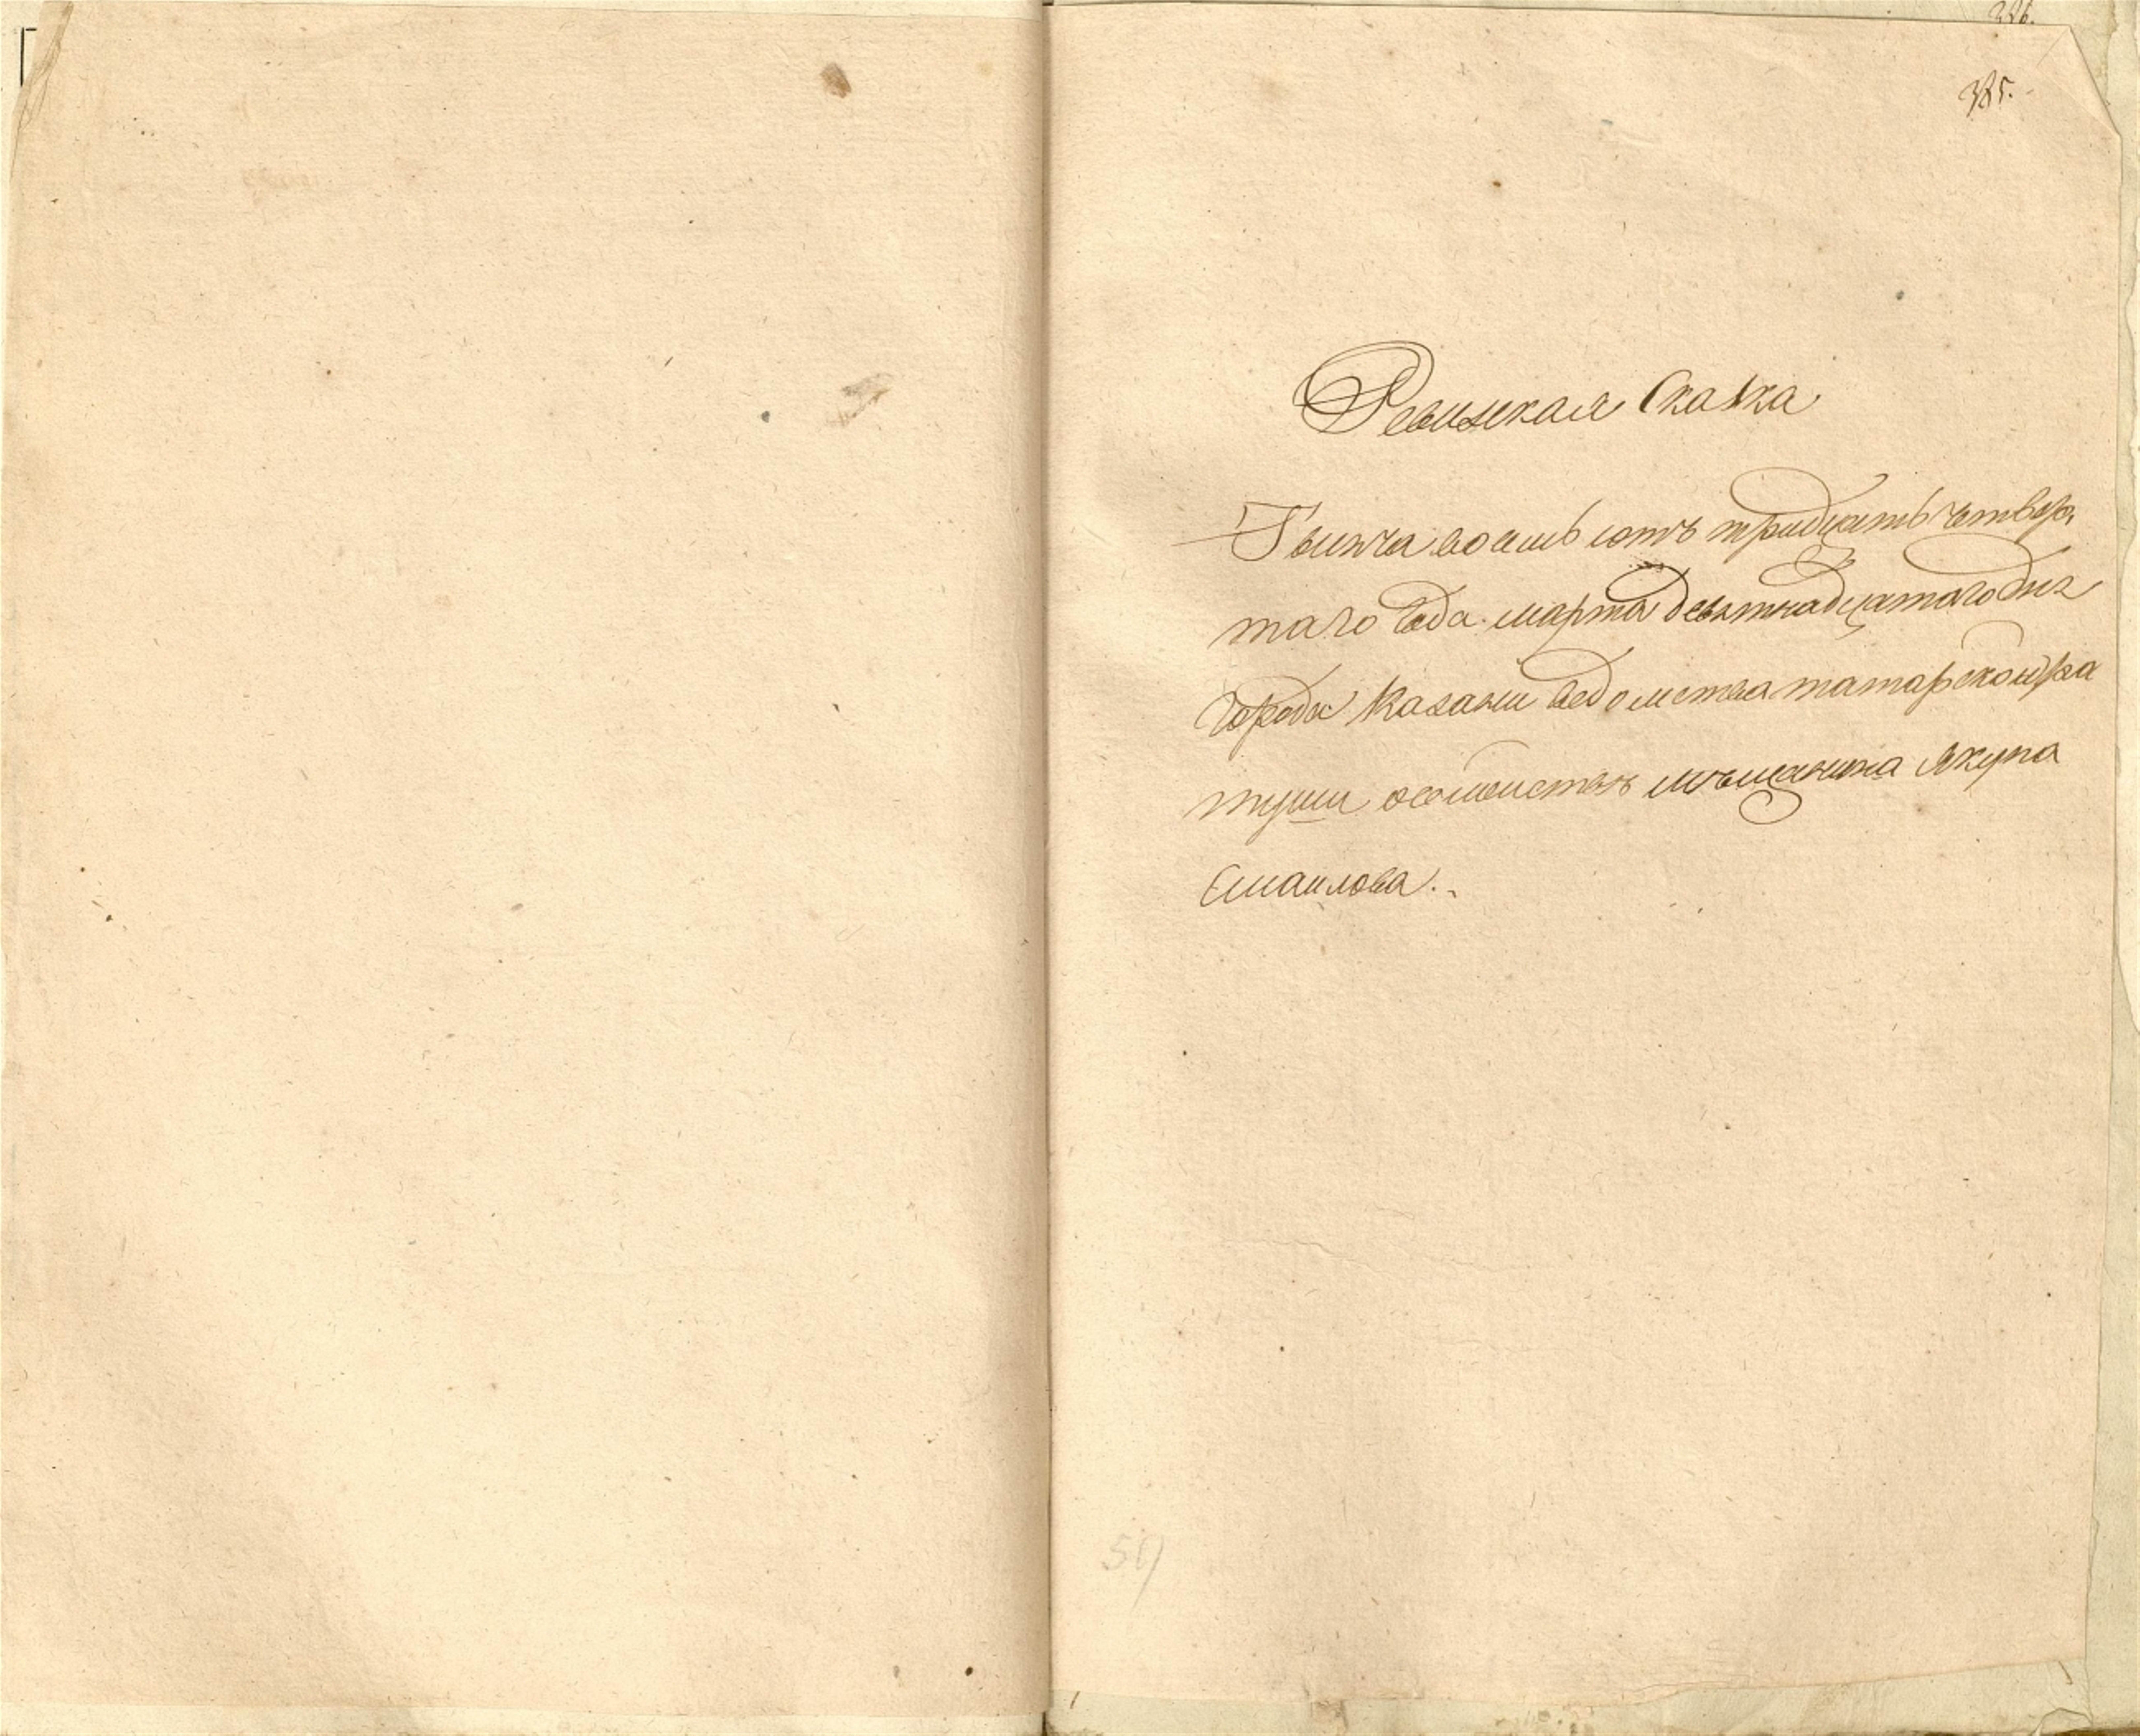 326.
385.
Ревиская Скаска
Тысяча восемь сотъ тридцать четвер,
таго года марта девятнадцатаго дня
города Казани ведомства татарской ра
туши осемействе мѣщанина Якупа
Смаилова.
59